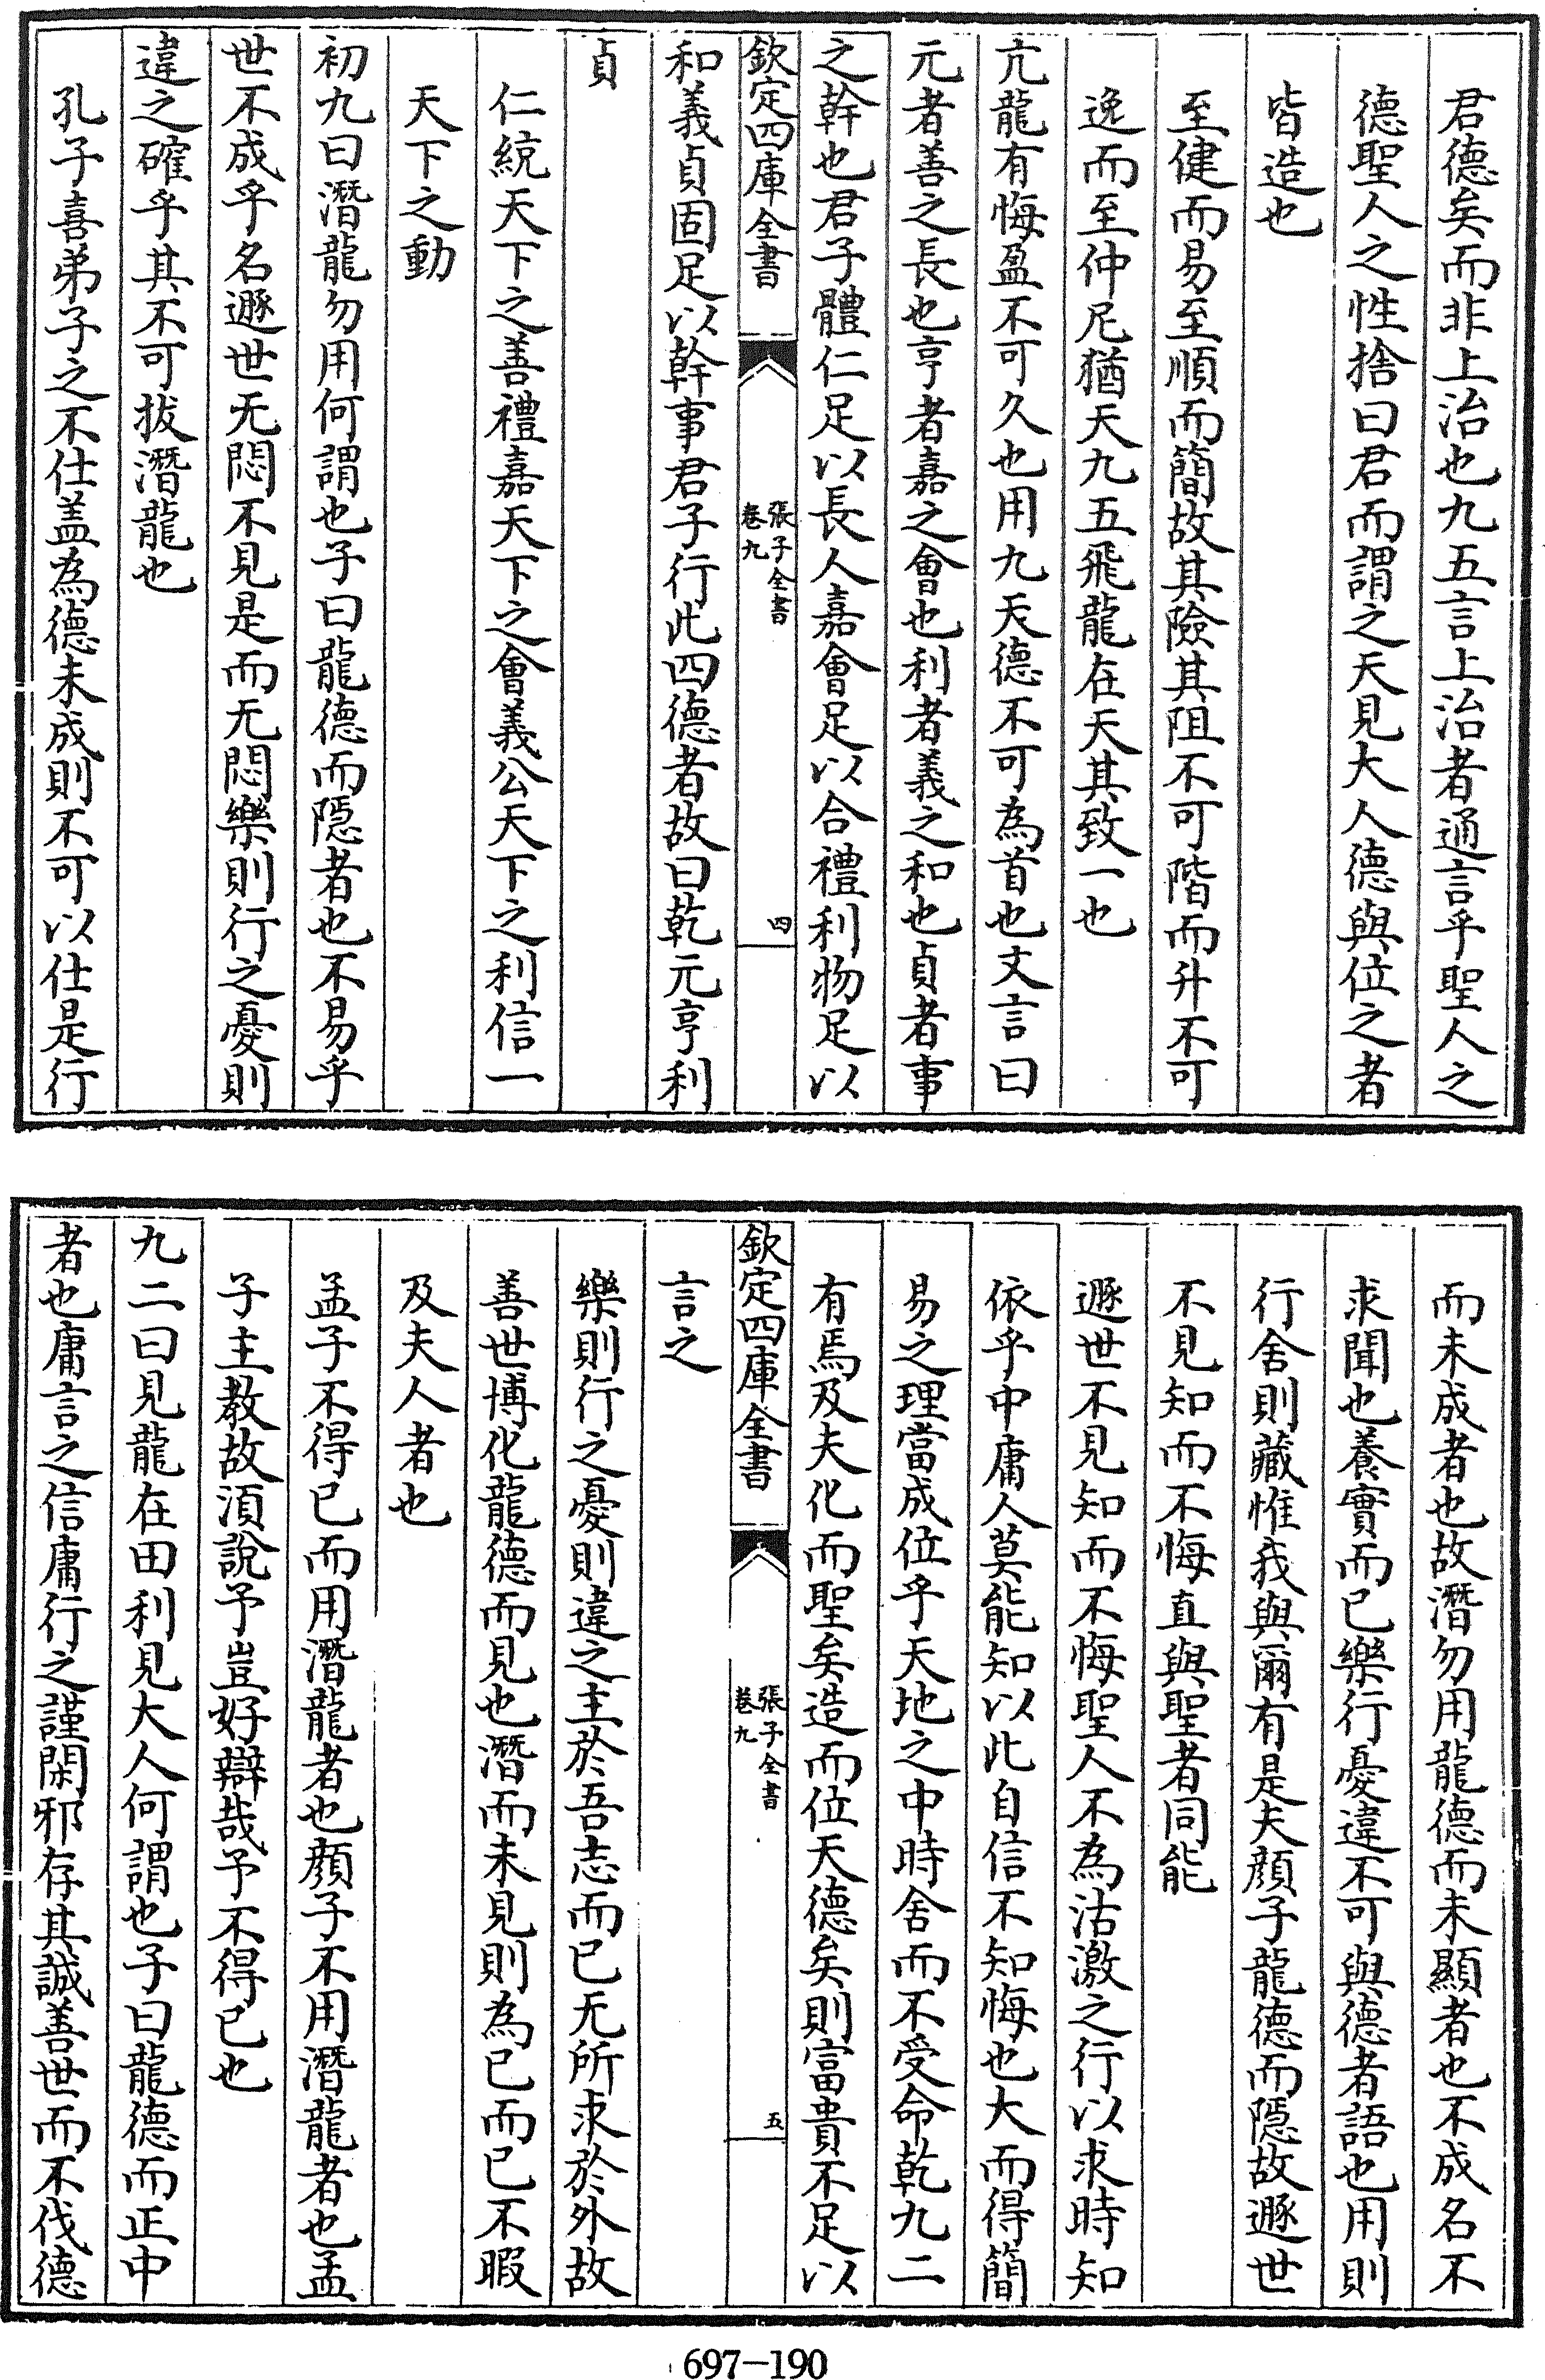 君德矣而非上治也九五言上治者通言乎聖人之
德聖人之性捨曰君而謂之天見大人德與位之者
皆造也
至健而易至順而簡故其險其阻不可階而升不可
逸而至仲尼猶天九五飛龍在天其致一也
亢龍有悔盈不可久也用九天德不可為首也文言曰
元者善之長也亨者嘉之會也利者義之和也貞者事
之幹也君子體仁足以長人嘉會足以合禮利物足以
欽定四庫全書
張子全書
卷九
四
和義貞固足以幹事君子行此四德者故曰乾元亨利
貞
仁統天下之善禮嘉天下之會義公天下之利信一
天下之動
初九曰潛龍勿用何謂也子曰龍德而隱者也不易乎
世不成乎名遯世无悶不見是而无悶樂則行之憂則
違之確乎其不可拔潛龍也
孔子喜弟子之不仕蓋為德未成則不可以仕是行
而未成者也故潛勿用龍德而未顯者也不成名不
求聞也養實而已樂行憂違不可與德者語也用則
行舍則藏惟我與爾有是夫顏子龍德而隱故遯世
不見知而不悔直與聖者同能
遯世不見知而不悔聖人不為沽激之行以求時知
依乎中庸人莫能知以此自信不知悔也大而得簡
易之理當成位乎天地之中時舍而不受命乾九二
有焉及夫化而聖矣造而位天德矣則富貴不足以
欽定四庫全書
張子全書
卷九
五
言之
樂則行之憂則違之主於吾志而已无所求於外故
善世博化龍德而見也潛而未見則為已而已不暇
及夫人者也
孟子不得已而用潛龍者也顏子不用潛龍者也孟
子主教故須說予豈好辯哉予不得已也
九二曰見龍在田利見大人何謂也子曰龍德而正中
者也庸言之信庸行之謹閑邪存其誠善世而不伐德
697-190